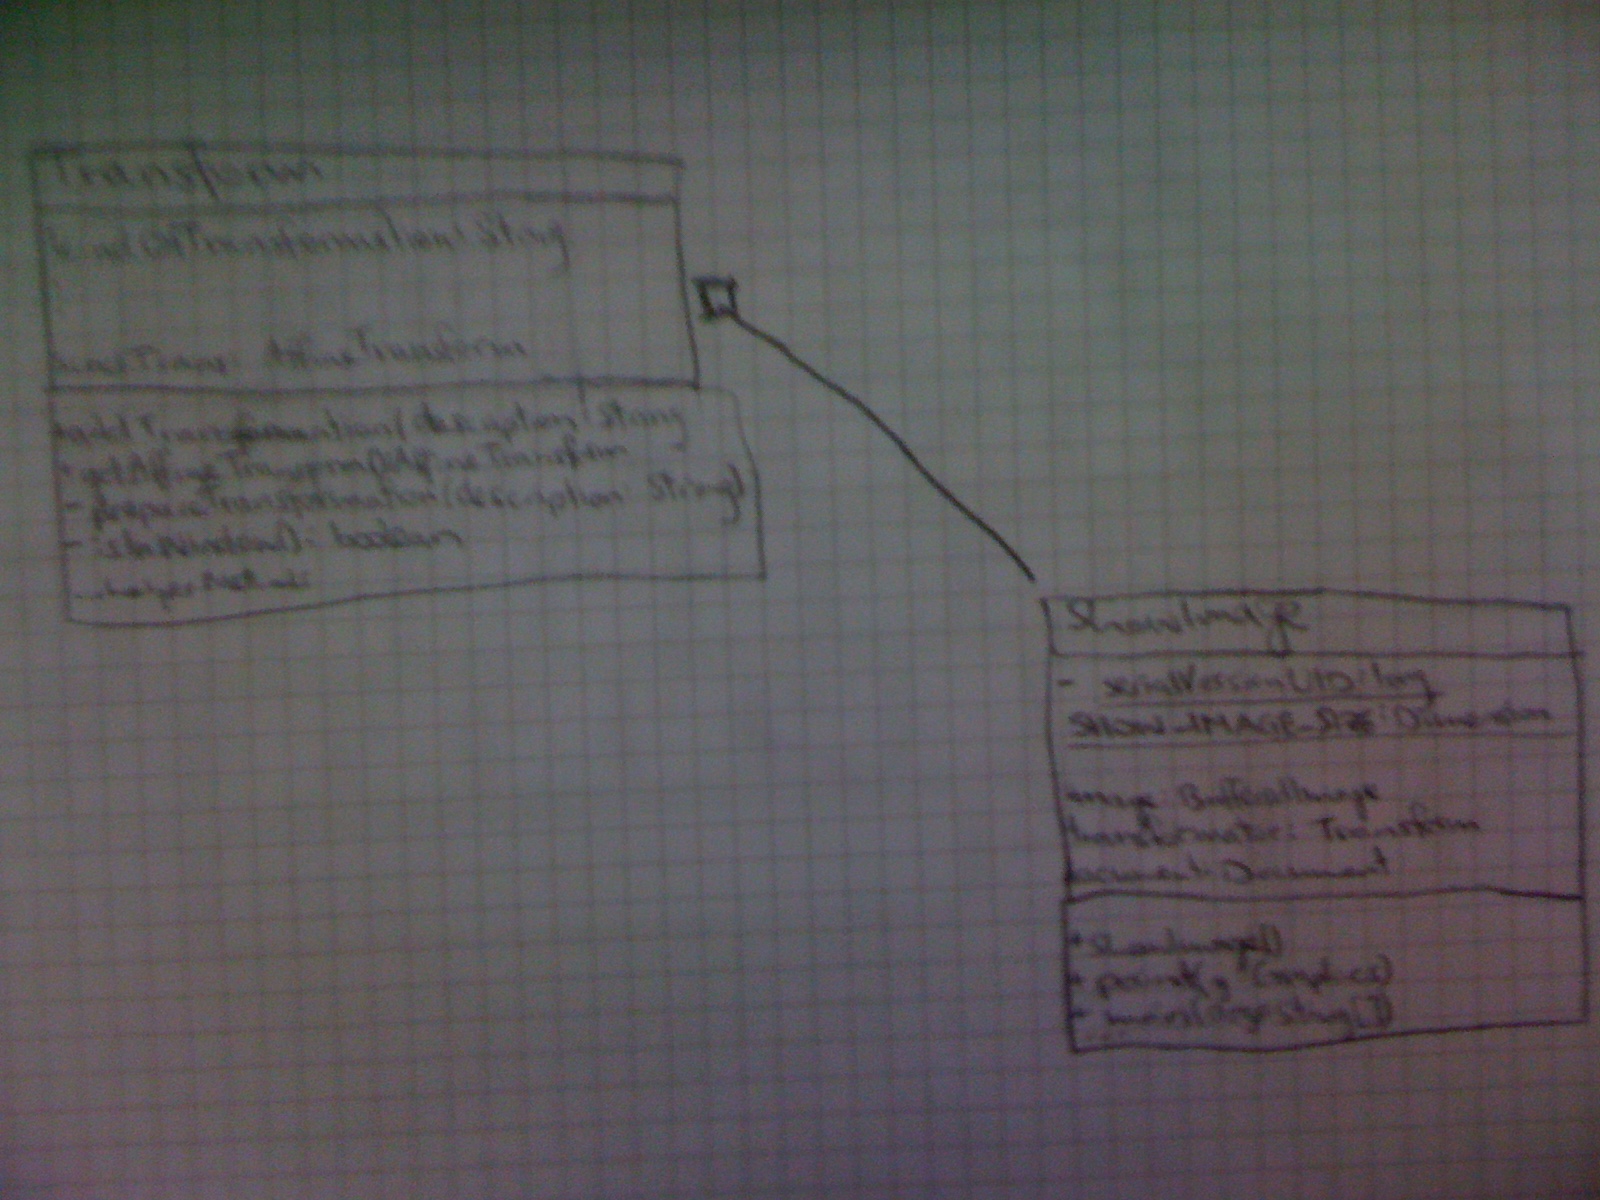 Transform
kindOfTransformation: String
Trans: AffineTransform
+addTransformation(description: String
+getAffineTransform():AffineTransform
- prepareTransformation(description: String)
- (): boolean
ShowImage
- serialVersionUID: long
SHOW_IMAGE_SIZE: Dimension
image: BufferedImage
transformator: Transform
document: Document
+ showImage()
+ paint(g: Graphics)
- main(args: String[])